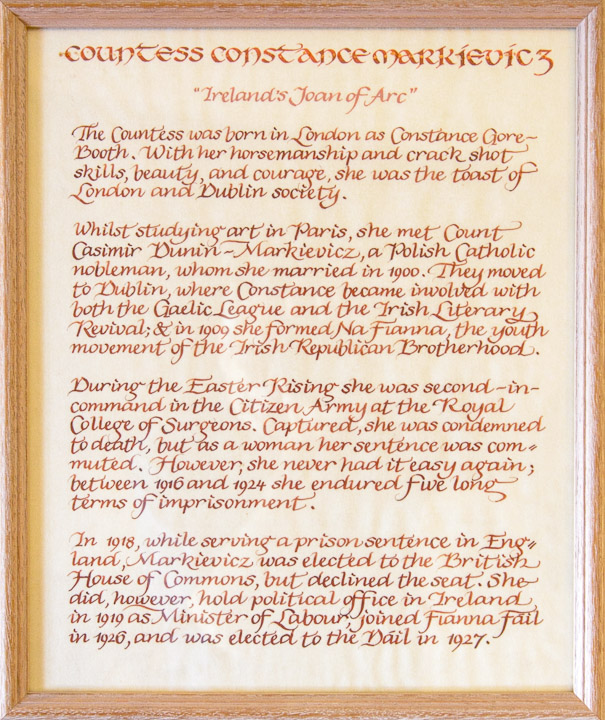 COUNTESS CONSTANCE MARKIEVICZ
"Ireland's Joan of Arc"
The Countess was born in London as Constance Gore-
Booth. With her horsemanship and crack shot
skills, beauty, and courage, she was the toast of
London and Dublin society.
Whilst studying art in Paris, she met Count
Casimir Dunin-Markievicz, a Polish Catholic
nobleman, whom she married in 1900. They moved
to Dublin, where Constance became involved with
both the Gaelic League and the Irish Literary
Revival; & in 1909 she formed Na Fianna, the youth
movement of the Irish Republican Brotherhood.
During the Easter Rising she was second-in-
command in the Citizen Army at the Royal
College of Surgeons. Captured, she was condemned
to death, but as a woman her sentence was com=
muted. However, she never had it easy again;
between 1916 and 1924 she endured five long
terms of imprisonment.
In 1918, while serving a prison sentence in Eng=
land, Markievicz was elected to the British
House of Commons, but declined the seat. She
did, however, hold political office in Ireland
in 1919 as Minister of Labour, joined Fianna Fail
in 1926, and was elected to the Dail in 1927.